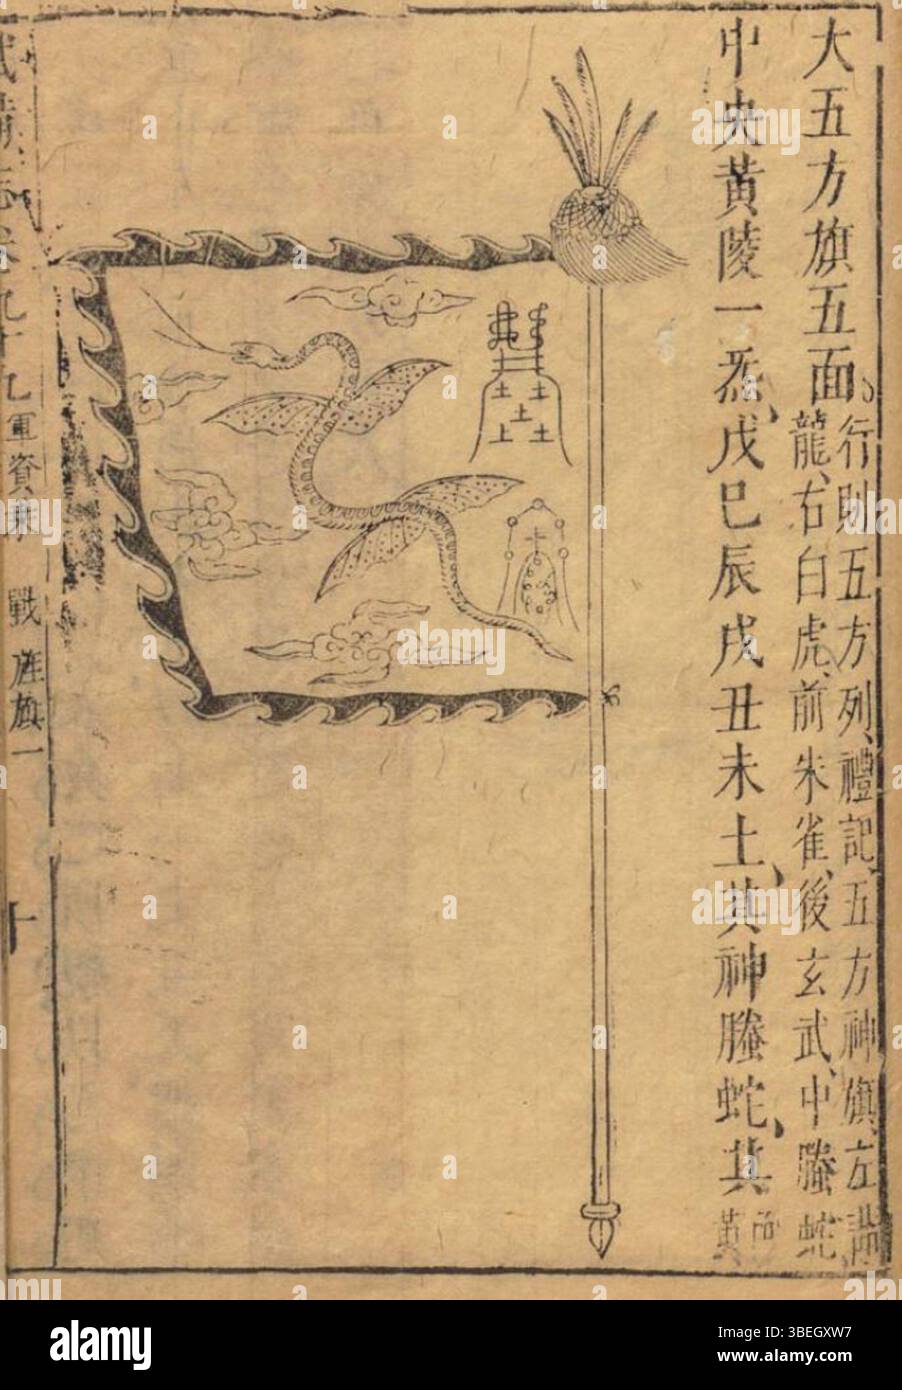 大五方旗五面
行則五方列、禮記、五方神旗、左青
龍、右白虎、前朱雀、後玄武、中螣蛇
中央黃陵一炁、戊巳辰戌丑未土、其神螣蛇、其色
黃
武備志卷九十九 軍資乘 戰 旌旗一
十
a a a
a a a
a a a
a a a
a a a
alamy
Image ID: 3BEGXW7
www.alamy.com